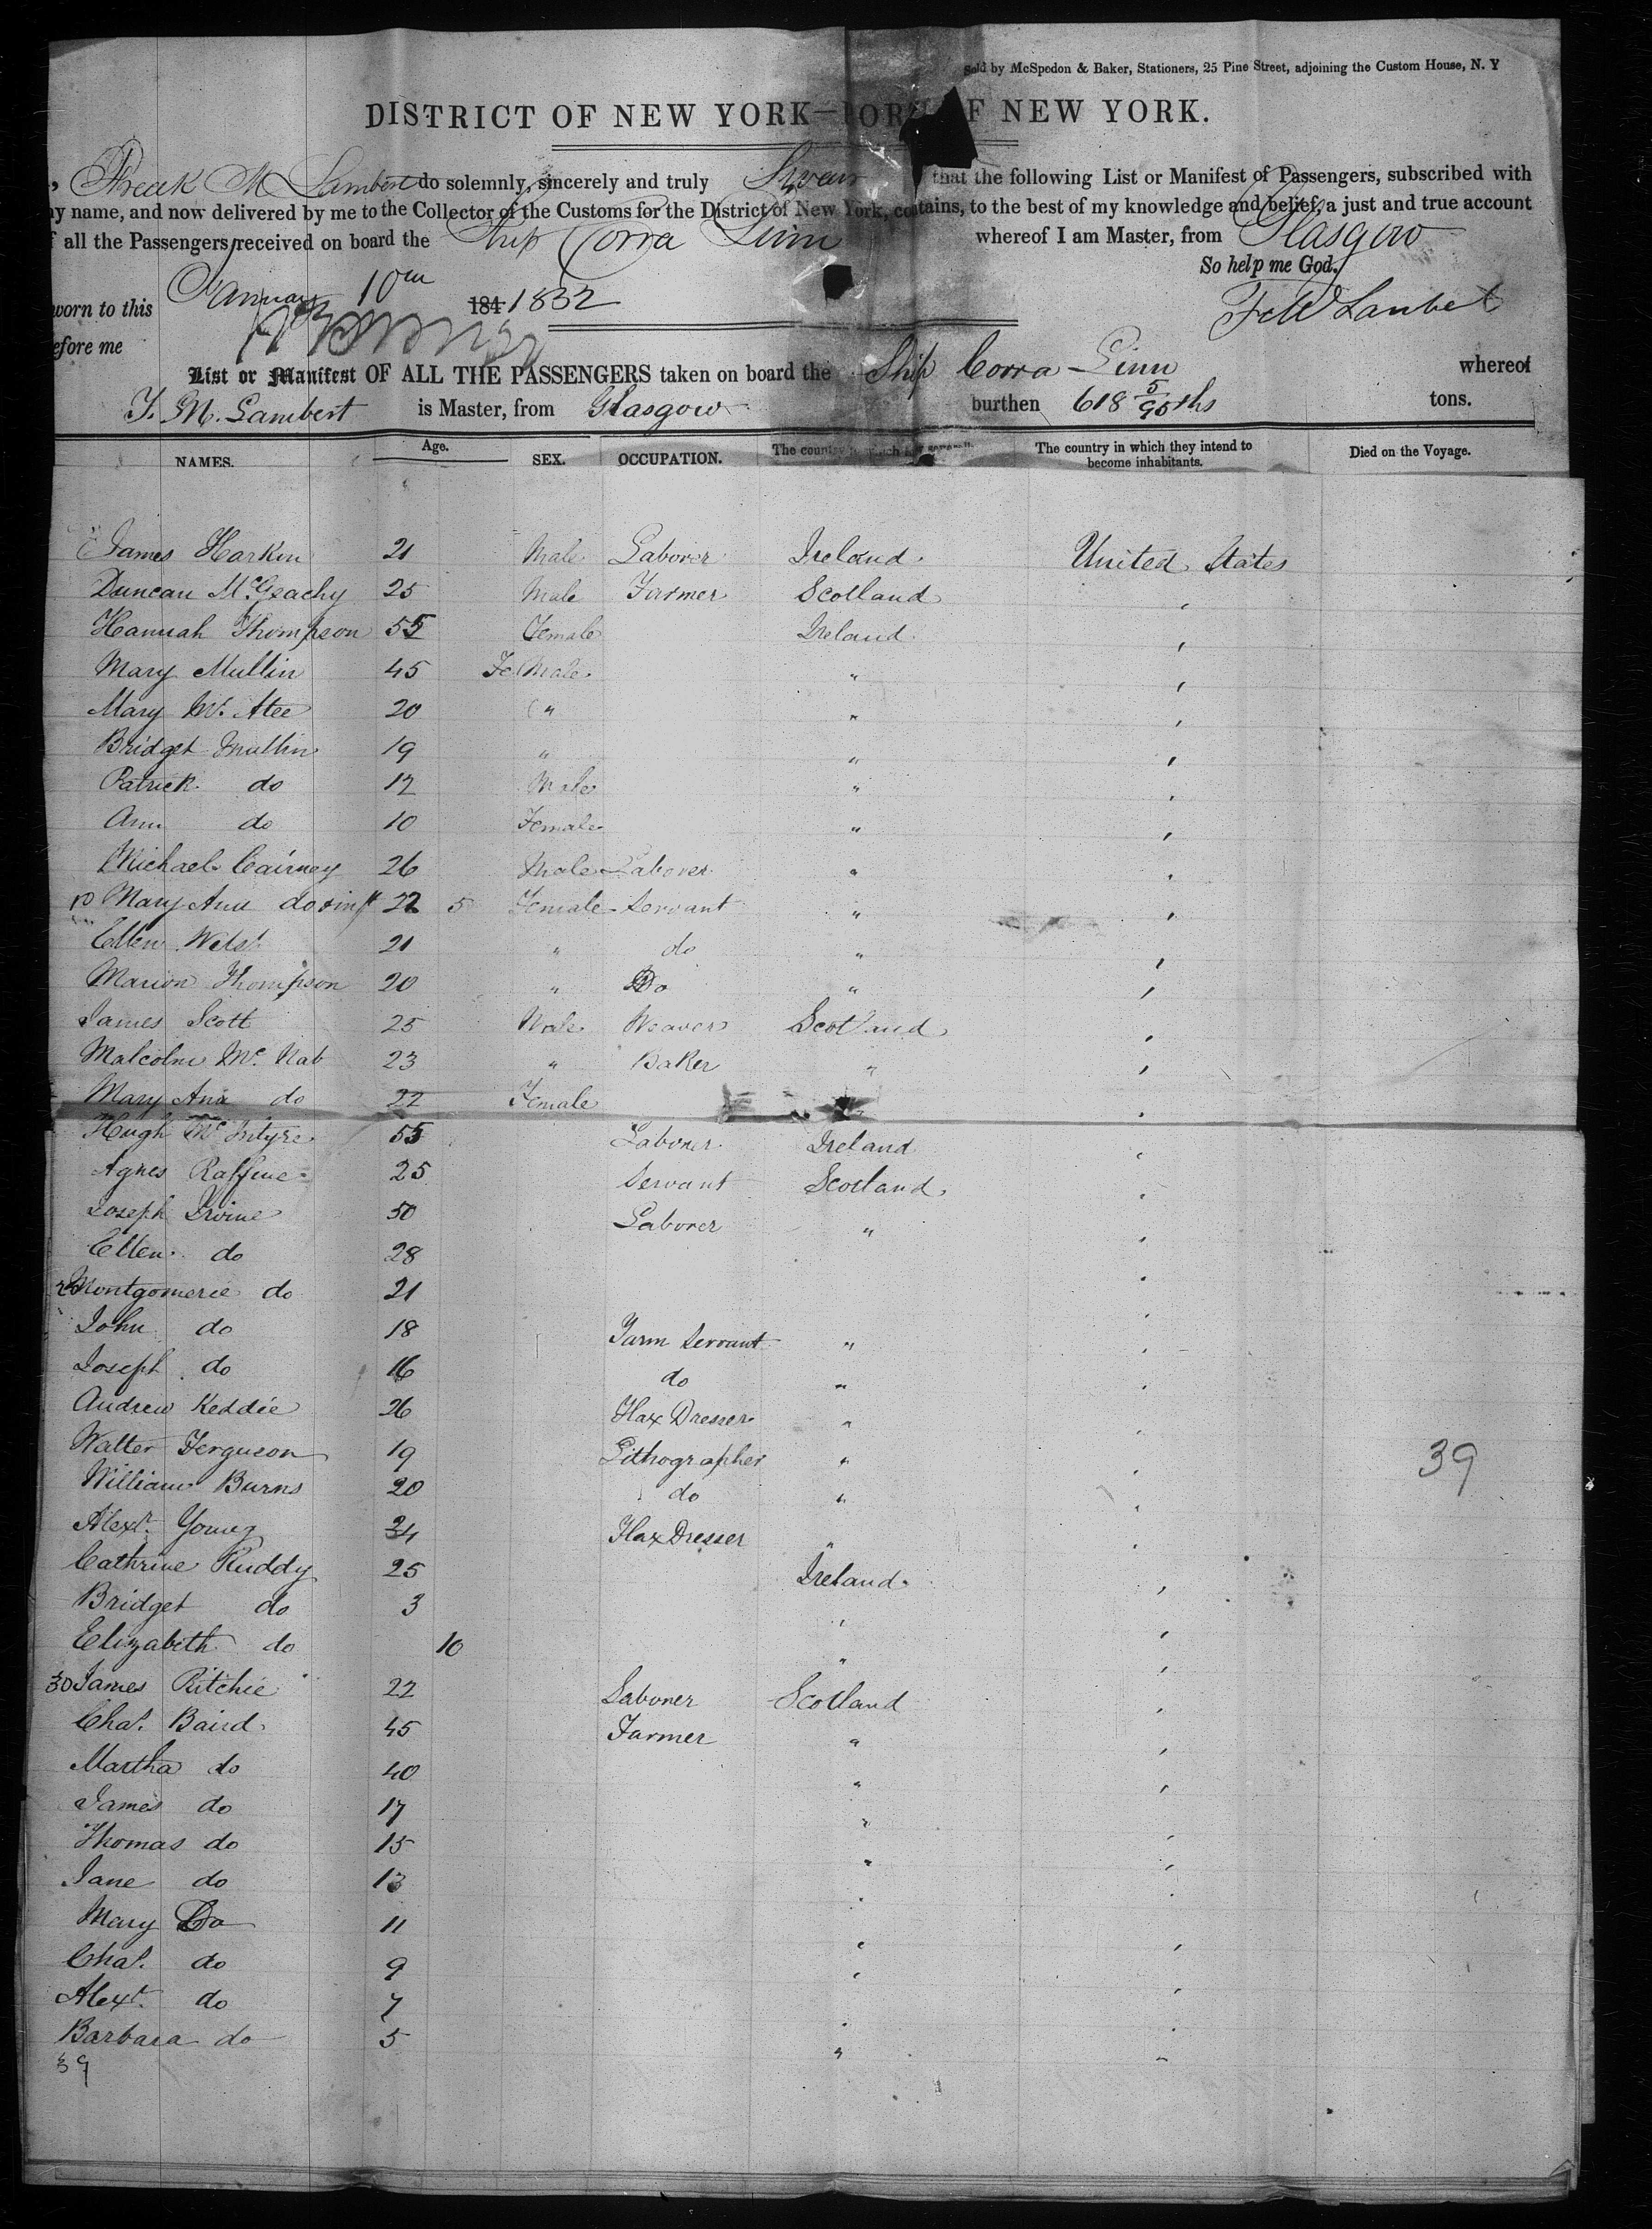 Sold by McSpedon & Baker, Stationers, 25 Pine Street, adjoining the Custom House, N. Y
DISTRICT OF NEW YORK—PORT OF NEW YORK.
M Lambert do solemnly, sincerely and truly Swear that the following List or Manifest of Passengers, subscribed with
my name, and now delivered by me to the Collector of the Customs for the District of New York, contains, to the best of my knowledge and belief, a just and true account
of all the Passengers received on board the Ship Corra Linn whereof I am Master, from Glasgow
So help me God.
worn to this January 10th 184 1852
F M Lambert
efore me
List or Manifest OF ALL THE PASSENGERS taken on board the Ship Corra Linn whereof
F. M. Lambert is Master, from Glasgow burthen 618 5/95ths tons.
NAMES. Age. SEX. OCCUPATION. The country to which they severally The country in which they intend to become inhabitants. Died on the Voyage.
James Harkin 21 Male Laborer Ireland United States
Duncan McGeachy 25 Male Farmer Scotland ,
Hannah Thompson 55 Female Ireland ,
Mary Mullin 45 FeMale " ,
Mary Mc Atee 20 " " ,
Bridget Mullin 19 " " ,
Patrick do 12 Male " ,
Ann do 10 Female " ,
Michael Cairney 26 Male Laborer " ,
10 Mary Ann do & inft 22 5 Female Servant " ,
Ellen Welsh 21 " do " ,
Marion Thompson 20 " Do " ,
James Scott 25 Male Weaver Scotland ,
Malcolm Mc Nab 23 " Baker " ,
Mary Ann do 22 Female ,
Hugh Mc Intyre 55 Laborer Ireland ,
Agnes 25 Servant Scotland ,
Joseph Irvine 50 Laborer " ,
Ellen do 28 ,
20 Montgomerie do 21 ,
John do 18 Farm Servant " ,
Joseph do 16 do " ,
Andrew Keddie 26 Flax Dresser " ,
Walter Ferguson 19 Lithographer " , 39
William Burns 20 do " ,
Alexr Young 24 Flax Dresser " ,
Cathrine Ruddy 25 Ireland ,
Bridget do 3 " ,
Elizabeth do 10 " ,
30 James Ritchie 22 Laborer Scotland ,
Chas. Baird 45 Farmer " ,
Martha do 40 " ,
James do 17 " ,
Thomas do 15 " ,
Jane do 13 " ,
Mary Do 11 " ,
Chas. do 9 " ,
Alexr. do 7 " ,
Barbara do 5 " "
39